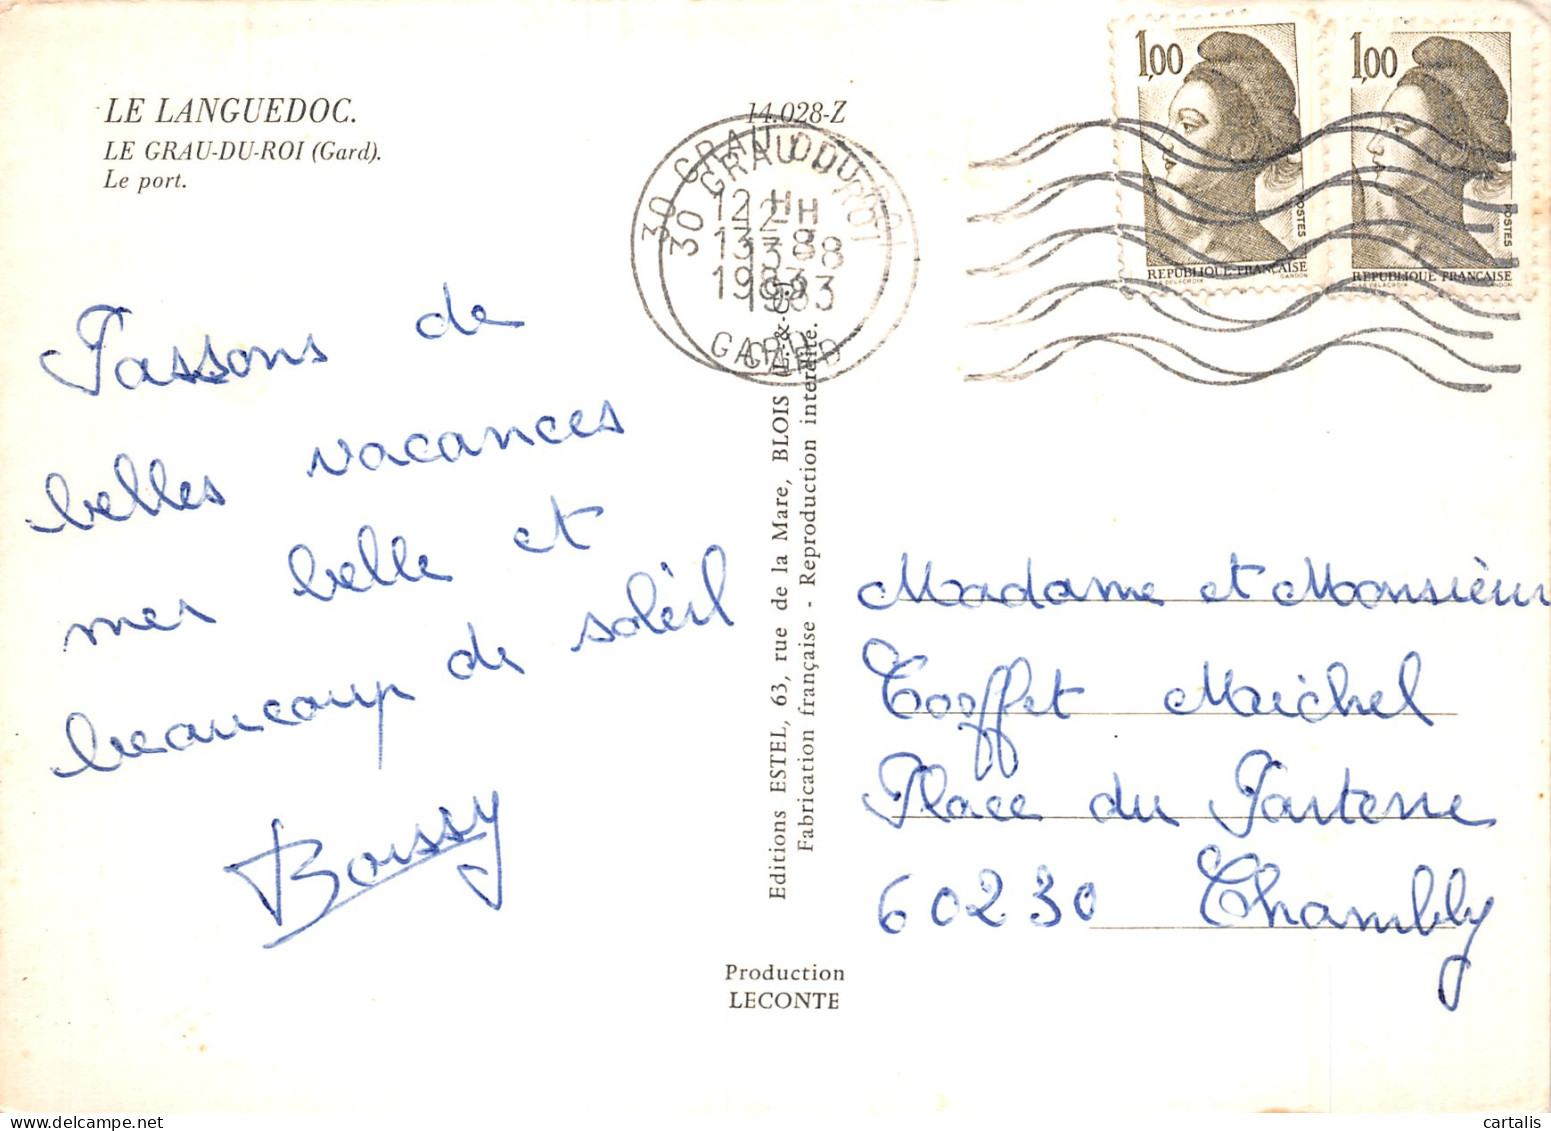 LE LANGUEDOC.
LE GRAU-DU-ROI (Gard).
Le port.
14.028-Z
30 GRAU DU ROI
12 H
13-8
1983
GARD
1,00
POSTES
REPUBLIQUE FRANÇAISE
1,00
POSTES
REPUBLIQUE FRANÇAISE
Passons de
belles vacances
mer belle et
beaucoup de soleil
Boissy
Editions ESTEL, 63, rue de la Mare, BLOIS
Fabrication française - Reproduction interdite.
Production
LECONTE
Madame et Monsieur
Toffet Michel
Place du Parterre
60230 Chambly
cartalis